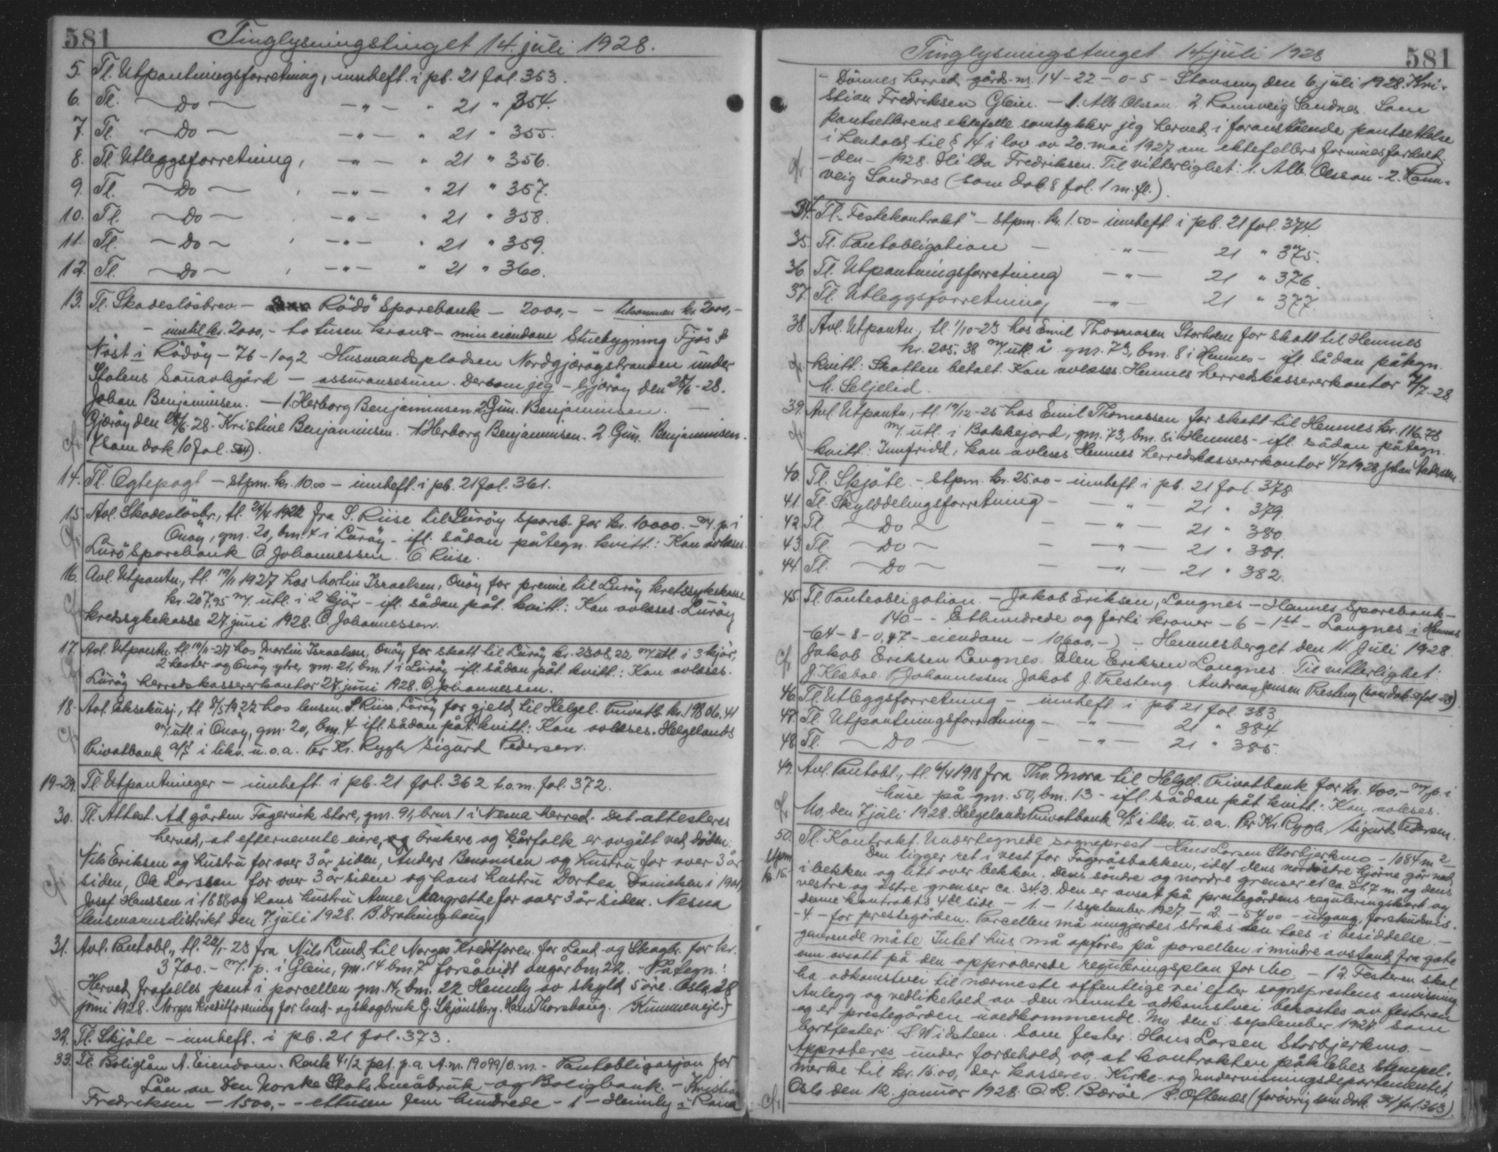 581 Tinglysningstinget 14. juli 1928.
5. Tl. Utpantningsforretning, innheft. i pb. 21 fol. 353.
6. Tl. —Do— —"— " 21 " 354.
7. Tl. —Do— —"— " 21 " 355.
8. Tl. Utleggsforretning, —"— " 21 " 356.
9. Tl. —Do— —"— " 21 " 357.
10. Tl. —Do— —"— " 21 " 358.
11. Tl. —Do— —"— " 21 " 359.
12. Tl. —Do— —"— " 21 " 360.
13. Tl. Skadesløsbrev — Rödö Sparebank — 2000,- - tilsammen kr. 2000,-
- inntil kr. 2000,- to tusen kroner - min eiendom Stuebygning Fjös &
Nöst i Rödöy - 76 - 1 og 2 - Husmandspladsen Nordgjærøystranden under
Statens — assuransesum. Dersom jeg — Gjæröy den 28/6 - 28.
Johan Benjaminsen. — 1. Herborg Benjaminsen 2 Gun. Benjaminsen. —
Gjæröy den 28/6-28. Kristine Benjaminsen. 1. Herborg Benjaminsen. 2 Gun. Benjaminsen.
(som dok 10 fol. 524).
14. Tl. Ogtepagt — stpm. kr. 10.00 — innheft. i pb. 21 fol. 361.
15. Avl. Skadesløsbr., tl. 1922 fra S. Riise til Luröy Spareb. for kr. 10000.- m/ p. i
Onöy, gm. 20, bm. 4 i Luröy - ifl. sådan påtegn. kvitt: Kan avleses.
Luröy Sparebank O Johannessen E Riise.
16. Avl. Utpantn., tl. 19/11 1927 hos Martin Israelsen, Onöy for premie til Luröy kretssykekasse
kr. 207,95 m/ utl. i 2 kjör - ifl. sådan påt. kvitt: Kan avleses. Luröy
kredssykekasse 27 juni 1928. O Johannessen.
17. Avl. Utpantn. tl. 19/11-27 hos Martin Israelsen, Onöy for skatt til Luröy kr. 2308,22 m/ utl. i 3 kjör,
2 hester og Onöy ytre, gm. 21, bm. 1 i Luröy - ifl. sådan påt. kvitt: Kan avleses.
Luröy herredskassererkontor 27. juni 1928. O Johannessen.
18. Avl. Eksekusj., tl. 1922 hos lensm. S Riise, Luröy for gjeld til Helgel. Privatb. kr. 19806.41
m/ utl. i Onöy, gm. 20, bm. 4 ifl. sådan påt. kvitt: Kan avleses. Helgelands
Privatbank A/S i likv. u.o.a. Per Kr. Rygh / Sigurd Pedersen.
19-29. Tl. Utpantninger - innheft i pb. 21 fol. 362 t.o.m. fol. 372.
30. Tl. Attest. Ad gården Fagervik store, gm. 91, brm 1 i Nesna herred. Det attesteres
herved, at efternevnte eiere og brukere og kårfolk er avgått ved döden.
Nils Eriksen og hustru for over 3 år siden, Anders Benonsen og hustru for over 3 år
siden, Ole Larssen for over 3 år siden og hans hustru Dortea Danielsen i
Josef Hanssen i 1888 og hans hustru Anne Margrethe for over 3 år siden. Nesna
lensmannsdistrikt den 7 juli 1928. B.
31. Avl. Pantobl., tl. 22/1-23 fra Nils Lund til Norges Kredittforen. for Land- og Skogbr. for kr.
3700.- m/ p. i Glein, gm. 14 bm. 7 forsåvidt angår bm. 22. Påtegn:
Herved frafalles pant i parcellen gm. 14, bm. 22 Heimly av skyld 5 øre. Oslo, 28
juni 1928. Norges Kreditforening for land- og skogbruk G. Skjönsberg. Hans Thorshaug.
32. Tl. Skjöte - innheft. i pb. 21 fol. 373.
33. Tl. Boliglån A. Eiendom. Rente 4 1/2 pct. p.a. A.m. 19099/o.m. - Pantobligasjon for
Lån av Den Norske Stats Småbruk- og Boligbank. - Kristian
Fredriksen - 1500,- - ettusen fem hundrede - 1 - Heimly i
Tinglysningstinget 14 juli 1928 581
- Dönnes herred gårds-nr. 14 - 22 - 0 - 5 - den 6 juli 1928. Kri-
stian Fredriksen Glein. - 1. Alb. Olsson. 2 Rannveig Sandnes. Som
pantsetterens ektefelle samtykker jeg herved i foranstående pantsettelse
i henhold til § 14 i lov av 20. mai 1927 om ektefellers formuesforhold.
- den - 1928. Hilda Fredriksen. Til vitterlighet: 1. Alb. Olsson - 2. Rann-
veig Sandnes (som dok 8 fol. 1 m. fl.).
34. Tl. "Festekontrakt" - stpm. kr. 1.50 - innheft. i pb. 21 fol. 374.
35. Tl. Pantobligation — —"— 21 " 375.
36. Tl. Utpantningsforretning —"— 21 " 376.
37. Tl. Utleggsforretning —"— 21 " 377
38. Avl. Utpantn., tl. 1/10-23 hos Emil Thomassen Storheim for skatt til Hemnes
kr. 205.38 m/ utl. i gm. 73, bm. 8 i Hemnes - ifl. sådan påtegn.
kvitt: Skatten betalt. Kan avleses. Hemnes herredskassererkontor 4/7-28
M. Seljelid.
39. Avl. Utpantn., tl. 19/12-25 hos Emil Thomassen for skatt til Hemnes kr. 116.78
m/ utl. i Bakkejord, gm. 73, bm. 8 i Hemnes - ifl. sådan påtegn.
kvitt: Innfridd, kan avleses Hemnes herredskassererkontor 4/7 1928 Johan
40. Tl. Skjöte - stpm. kr. 25.00 - innheft i pb. 21 fol. 378
41. Tl. Skylddelingsforretning — —"— 21 " 379
42. Tl. —Do— —"— 21 " 380
43. Tl. —Do— —"— 21 " 381.
44. Tl. —Do— —"— 21 " 382.
45. Tl. Panteobligation. - Jakob Eriksen, Langnes - Hemnes Sparebank -
140 - - Ethundrede og førti kroner - 6 - 1st - Langnes i Hemnes
- 64 - 8 - 0,47 - eiendom - 1000.- - Hemnesberget den 11. Juli 1928
Jakob Eriksen Langnes. Elen Eriksen Langnes. Til vitterlighet:
J Klæboe. P Johannessen, Jakob J. Presteng. Andreas Jensen Presteng
46. Tl. Utleggsforretning - innheft i pb. 21 fol. 383
47. Tl. Utpantningsforretning - —"— 21 " 384
48. Tl. —DO— —"— 21 " 385.
49. Avl. Pantobl., tl. 4/4 1918 fra Tho. Mora til Helgel. Privatbank for kr. 400,- m/ p. i
huse på gm. 50, bm. 13 - ifl. sådan påt. kvitt: Kan avleses.
Mo, den 7 juli 1928. Helgelands Privatbank A/S i likv. u.o.a. Per Kr. Rygh / Sigurd Pedersen.
50. Tl. Kontrakt. Undertegnede sogneprest - Hans Larsen Storbjerkmo - 1084 m2
Stpm Den ligger ret i vest for Fagråsbakken, idet dens nordöstre hjörne går ned
i bekken og litt over bekken. Dens söndre og nordre grenser er ca. 31.7 m. og dens
vestre og östre grenser ca. 34.2. Den er avsat på prestegårdens reguleringskart og
denne kontrakts 4de side - 1. - 1 september 1927 - 2. - 54.00 - utgang, forskudsvis
- 4 - for prestegården. Parcellen må inngjerdes straks den taes i besiddelse. -
gjærende måte. Intet hus må opføres på parcellen i mindre avstand fra gate
enn avsatt på den approberede reguleringsplan for Mo. - 12 Festeren skal
ha adkomstvei til nærmeste offentlige vei efter sogneprestens anvisning
Anlegg og vedlikehold av den nevnte adkomstvei bekostes av festeren
og er prestegården uvedkommende. Mo, den 5. september 1927 som
bortfester S Widsteen. Som fester: Hans Larsen Storbjerkmo. -
Approberes under forbehold av, at kontrakten påklebes stempel-
merke til kr. 16.00, der kasseres. Kirke- og undervisningsdepartementet,
Oslo den 12. januar 1928. O.L. Bærøe / P. Oftenæs (forøvrig som dok. 34 fol. 363).